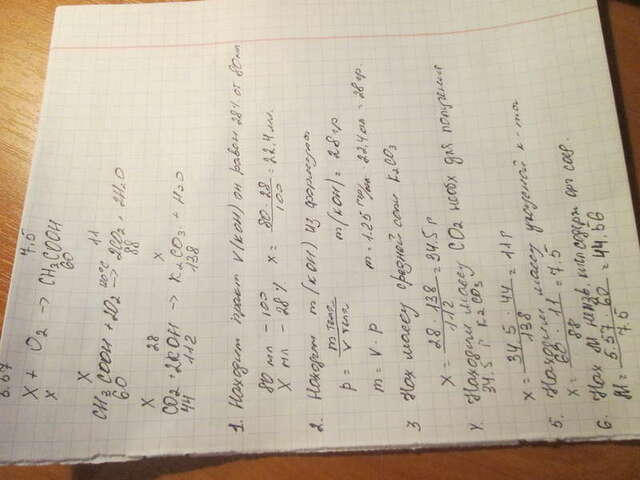 5.57 7.5
X + O2 → CH3COOH
x 60
X 11
CH3COOH + 2O2 → 2CO2 + 2H2O
60 88
X 28 X
CO2 + 2KOH → K2CO3 + H2O
44 112 138
1. Находим V(KOH) он равен 28% от 80 мл
80 мл – 100
X мл – 28% x = 80·28/100 = 22.4 мл.
2. Находим m(KOH) из формулы
p = m/V m(KOH) = 28 гр
m = V·P m = 1.25 22.4 мл = 28 гр.
3 Нах массу средней соли K2CO3
X = 28·138/112 = 34.5 г
4. Находим массу CO2 необх для получения
34.5 г K2CO3
X = 34.5·44/138 = 11 г
5. Находим массу уксусной к-ты
X = 60·11/88 = 7.5
6. Нах M неизв. орг соед.
M = 5.57·60/7.5 = 44.56